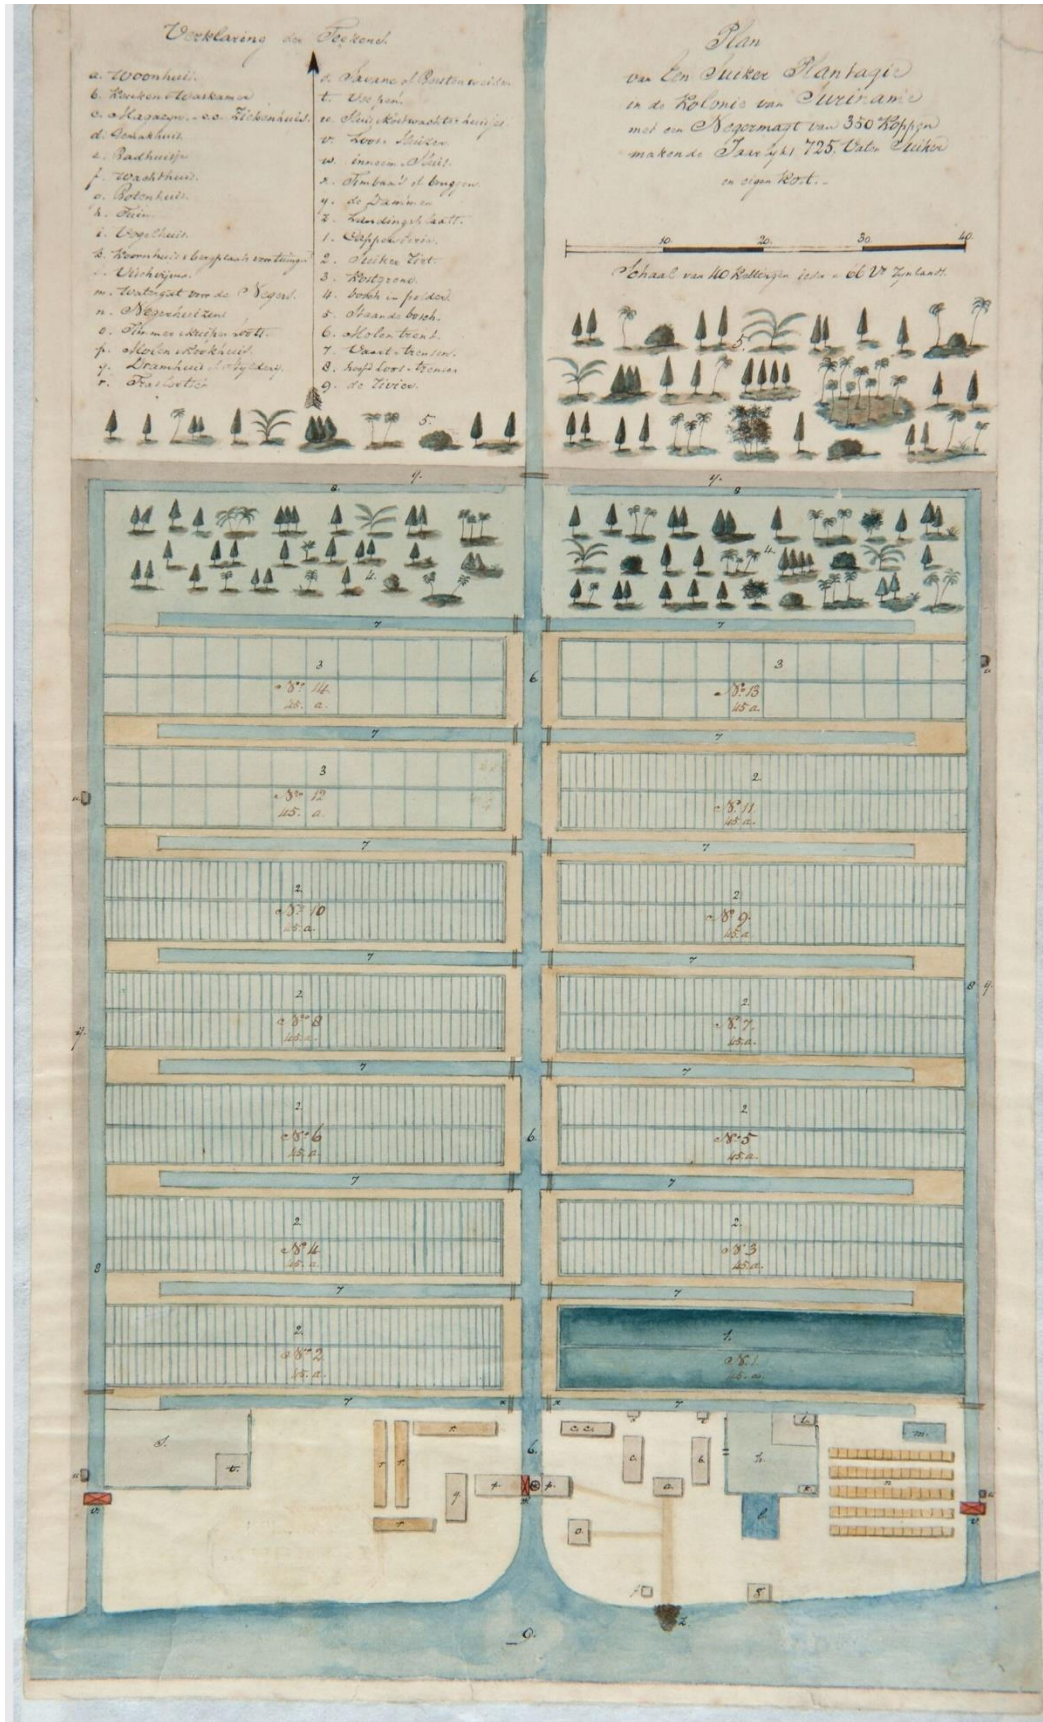 Verklaring der Teekens.
a. Woonhuis.
b. Keuken & Waskamer
c. Magazyn. cc. Ziekenhuis.
d. Gemakhuis.
e. Badhuisje
f. Wachthuis.
g. Botenhuis.
h. Tuin.
i. Vogelhuis.
k. Koornhuis & bergplaats voor tuingr
l. Vischvyver.
m. Watergat voor de Negers.
n. Negerhuizen
o. Timmer & kuipers loots.
p. Molen & Kookhuis.
q. Dramhuis
r. Trasloetsen
s. Savane of Beesten weiden
t. Vee pen.
u. Sluis & Kostwachters huisjes.
v. Loos Sluizen.
w. inneem Sluis.
x. of bruggen.
y. de Dammen
z. Landingsplaats.
1. Tapperverin.
2. Suiker Riet.
3. Kostgrond.
4. bosch in polder.
5. Staande bosch.
6. Molen trens.
7. Vaart-trensen.
8. hoofd loos-trensen
9. de Rivier.
Plan
van Een Suiker Plantagie
in de Kolonie van Suriname
met een Negermagt van 350 Koppen
makende Jaarlyks 725. Vaten Suiker
en eigen Kost.
10. 20. 30. 40.
Schaal van 40 Kettingen ieder à 66 Vt Rynlandt.
5.
5.
y. y.
8. 8
4. 4.
7 7
3 3
6.
No. 14 No. 13
45. a. 45 a.
7 7
3 2.
No. 12 No. 11
45. a. 45 a.
7 7
2. 2
No. 10 No. 9.
45. a. 45 a
7 7
8 y.
2. 2.
No. 8 No. 7.
45. a. 45 a.
y.
7 7
2. 2
6.
No. 6 No. 5
45. a. 45 a.
7 7
2. 2.
No. 4 No. 3
45. a. 45 a.
8
7 7
2. 1.
No. 2 No. 1
45. a. 45. a.
7 x x 7
s. r. cc. e e i. m.
t. r r 6. c. b. h. n
u p. p. a. k. u
v. q w l. v.
r o.
f. g.
z.
9.